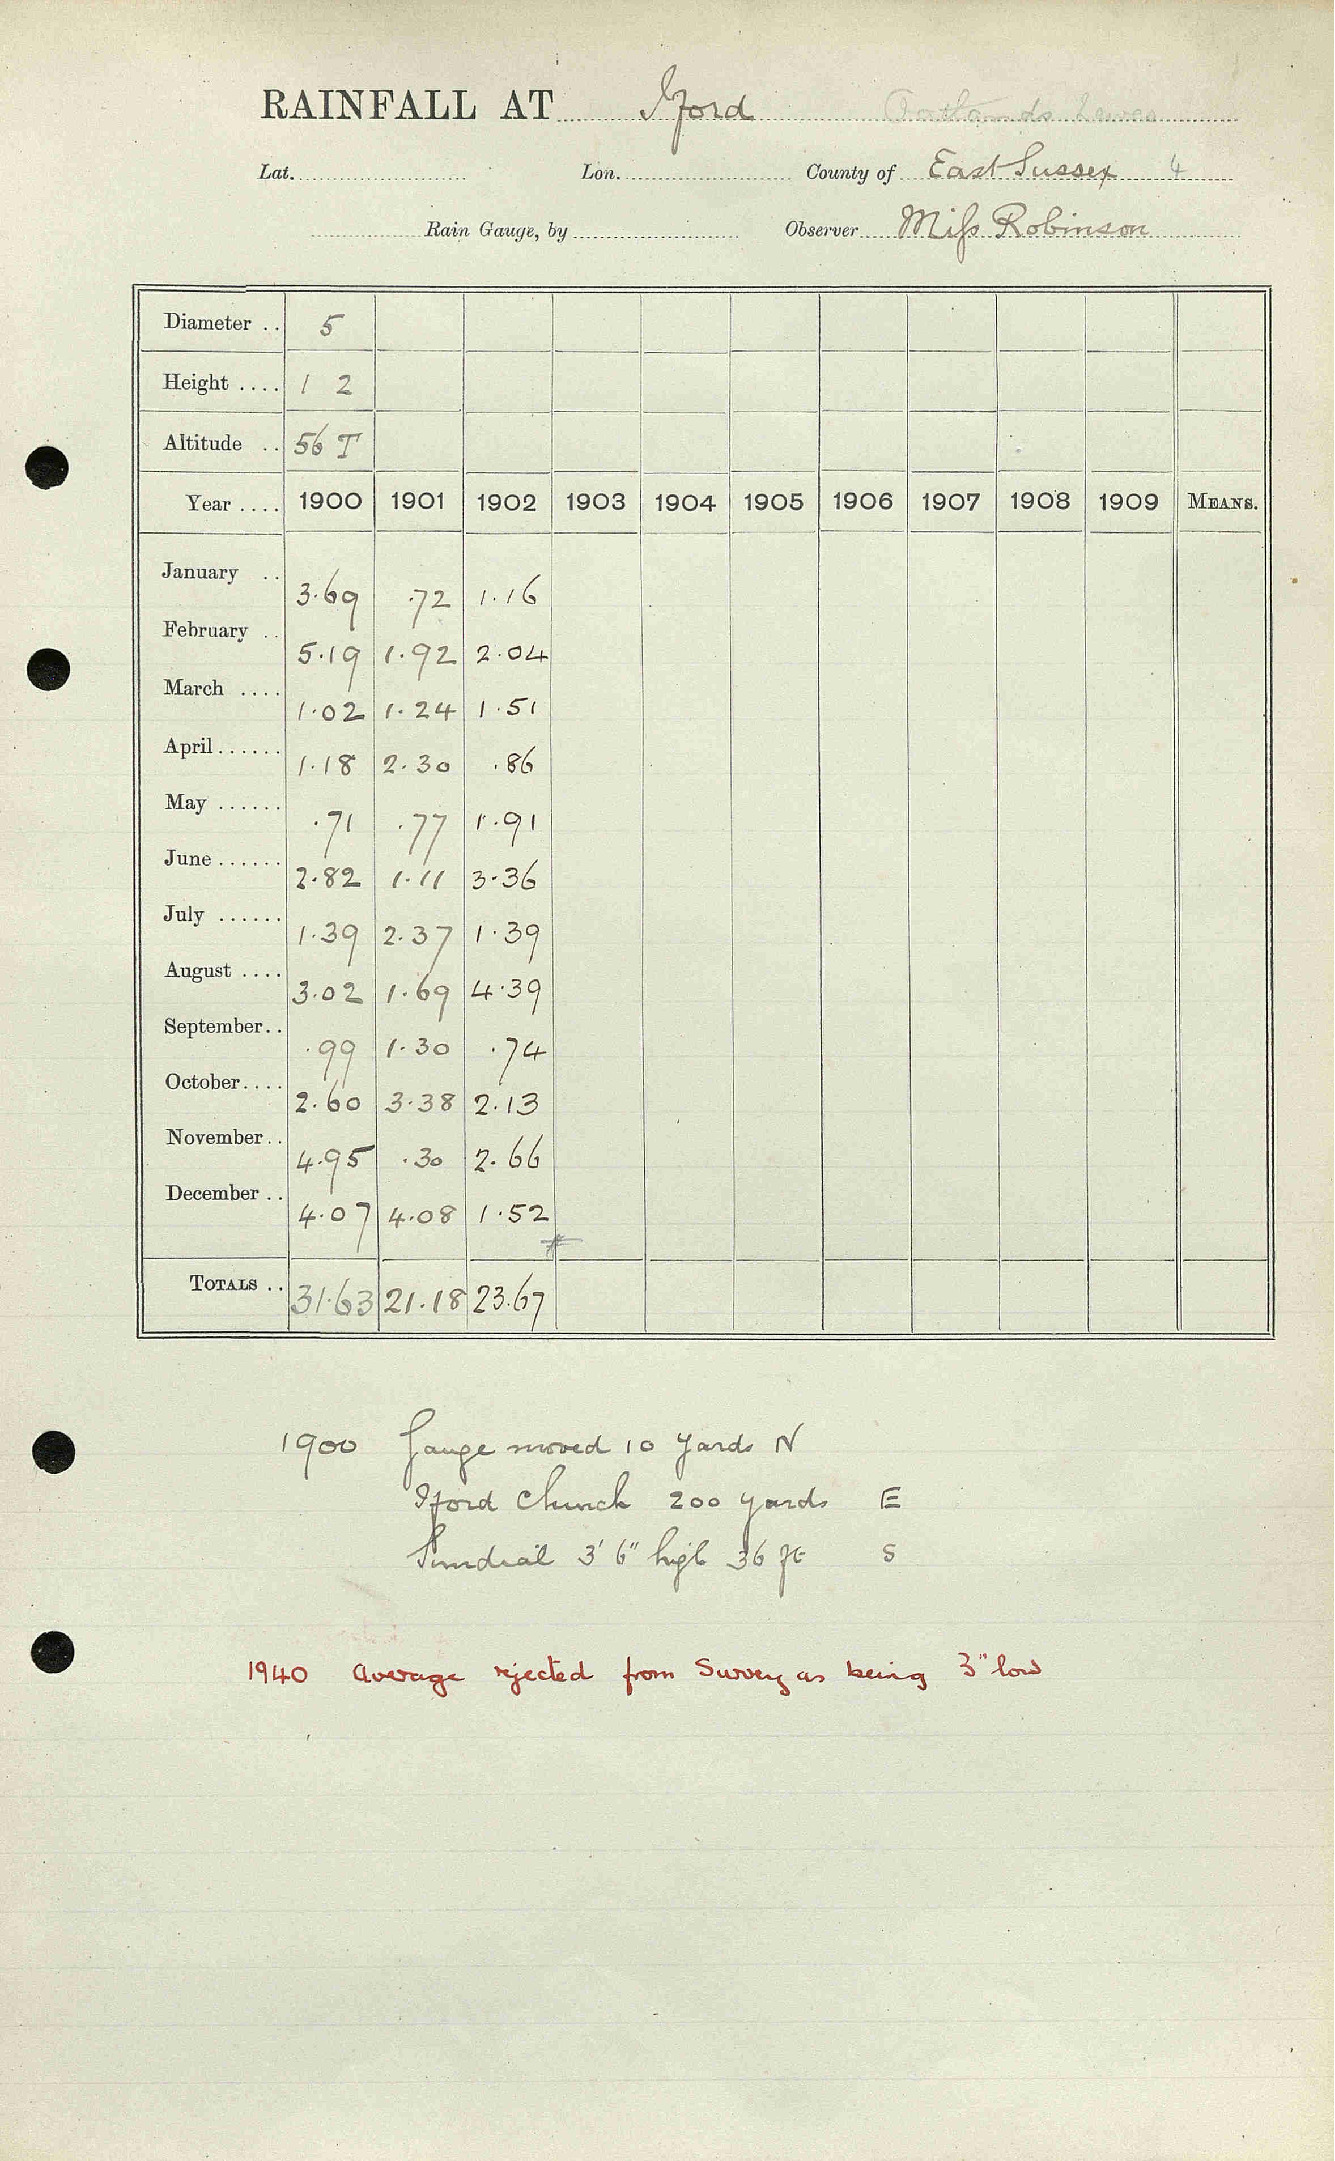 RAINFALL AT Iford
Lat. Lon. County of East Sussex 4
Rain Gauge, by Observer Miss Robinson
Diameter .. 5
Height .... 1 2
Altitude .. 56 T
Year .... 1900 1901 1902 1903 1904 1905 1906 1907 1908 1909 MEANS.
January .. 3.69 .72 1.16
February .. 5.19 1.92 2.04
March .... 1.02 1.24 1.51
April ...... 1.18 2.30 .86
May ...... .71 .77 1.91
June ...... 2.82 1.11 3.36
July ...... 1.39 2.37 1.39
August .... 3.02 1.69 4.39
September .. .99 1.30 .74
October .... 2.60 3.38 2.13
November .. 4.95 .30 2.66
December .. 4.07 4.08 1.52
TOTALS .. 31.63 21.18 23.67
1900 Gauge moved 10 yards N
Iford Church 200 yards E
Sundial 3' 6" high 36 ft S
1940 average rejected from Survey as being 3" low